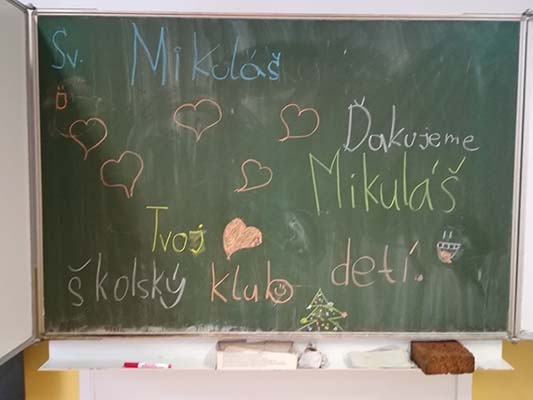 Sv. Mikuláš
Ďakujeme
Mikuláš
Tvoj
školský klub detí.